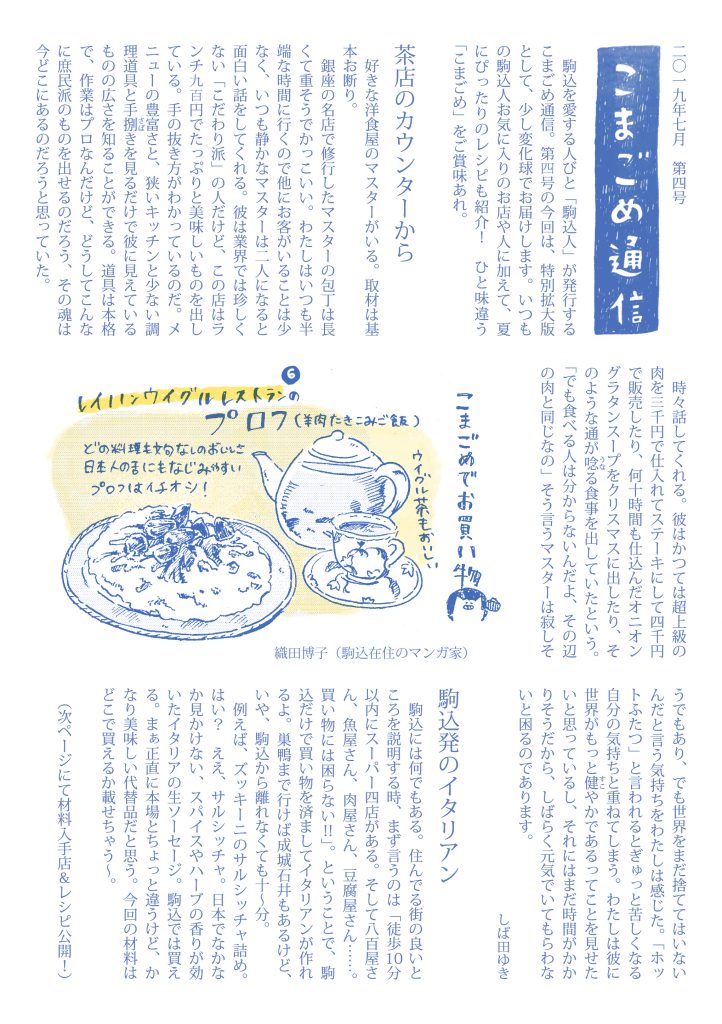 二〇一九年七月　第四号
こまごめ通信
駒込を愛する人びと「駒込人」が発行する
こまごめ通信。第四号の今回は、特別拡大版
として、少し変化球でお届けします。いつも
の駒込人お気に入りのお店や人に加えて、夏
にぴったりのレシピも紹介！　ひと味違う
「こまごめ」をご賞味あれ。
茶店のカウンターから
好きな洋食屋のマスターがいる。取材は基
本お断り。
銀座の名店で修行したマスターの包丁は長
くて重そうでかっこいい。わたしはいつも半
端な時間に行くので他にお客がいることは少
なく、いつも静かなマスターは二人になると
面白い話をしてくれる。彼は業界では珍しく
ない「こだわり派」の人だけど、この店はラ
ンチ九百円でたっぷりと美味しいものを出し
ている。手の抜き方がわかっているのだ。メ
ニューの豊富さと、狭いキッチンと少ない調
理道具と手捌きを見るだけで彼に見えている
ものの広さを知ることができる。道具は本格
で、作業はプロなんだけど、どうしてこんな
に庶民派のものを出せるのだろう、その魂は
今どこにあるのだろうと思っていた。
時々話してくれる。彼はかつては超上級の
肉を三千円で仕入れてステーキにして四千円
で販売したり、何十時間も仕込んだオニオン
グラタンスープをクリスマスに出したり、そ
のような通が唸る食事を出していたという。
「でも食べる人は分からないんだよ、その辺
の肉と同じなの」そう言うマスターは寂しそ
うでもあり、でも世界をまだ捨ててはいない
んだと言う気持ちをわたしは感じた。「ホッ
トふたつ」と言われるとぎゅっと苦しくなる
自分の気持ちと重ねてしまう。わたしは彼に
世界がもっと健やかであるってことを見せた
いと思っているし、それにはまだ時間がかか
りそうだから、しばらく元気でいてもらわな
いと困るのであります。
しば田ゆき
こまごめでお買い物
❻
レイハンウイグルレストランの
プロフ（羊肉たきこみご飯）
どの料理も文句なしのおいしさ
日本人の舌にもなじみやすい
プロフはイチオシ！
ウイグル茶もおいしい
織田博子（駒込在住のマンガ家）
駒込発のイタリアン
駒込には何でもある。住んでる街の良いと
ころを説明する時、まず言うのは「徒歩10分
以内にスーパー四店がある。そして八百屋さ
ん、魚屋さん、肉屋さん、豆腐屋さん……。
買い物には困らない!!」。ということで、駒
込だけで買い物を済ましてイタリアンが作れ
るよ。巣鴨まで行けば成城石井もあるけど、
いや、駒込から離れなくても十〜分。
例えば、ズッキーニのサルシッチャ詰め。
はい？　ええ、サルシッチャ。日本でなかな
か見かけない、スパイスやハーブの香りが効
いたイタリアの生ソーセージ。駒込では買え
る。まぁ正直に本場とちょっと違うけど、か
なり美味しい代替品だと思う。今回の材料は
どこで買えるか載せちゃう〜。
（次ページにて材料入手店＆レシピ公開！）